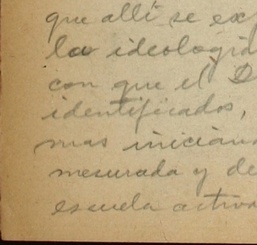 que allí se ex
la ideología
con que el D
identificados,
mas inician
mesurada y de
escuela activa